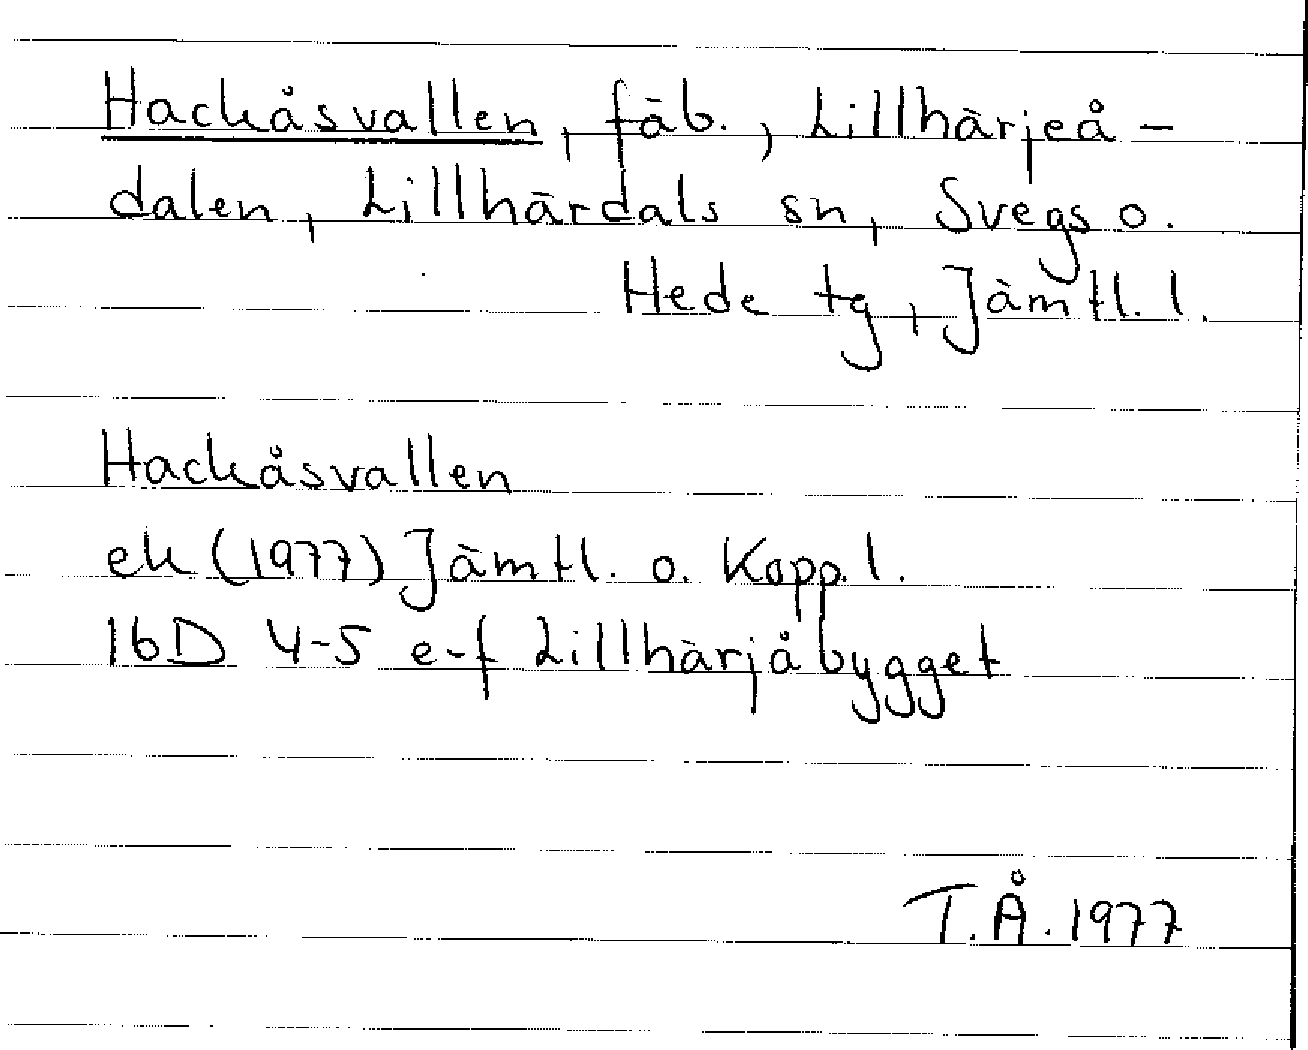 Hackåsvallen, fäb., Lillhärjeå-
dalen, Lillhärdals sn, Svegs o.
Hede tg, Jämtl. l.
Hackåsvallen
ek (1977) Jämtl. o. Kopp. l.
16D 4-5 e-f Lillhärjåbygget
T.Å. 1977